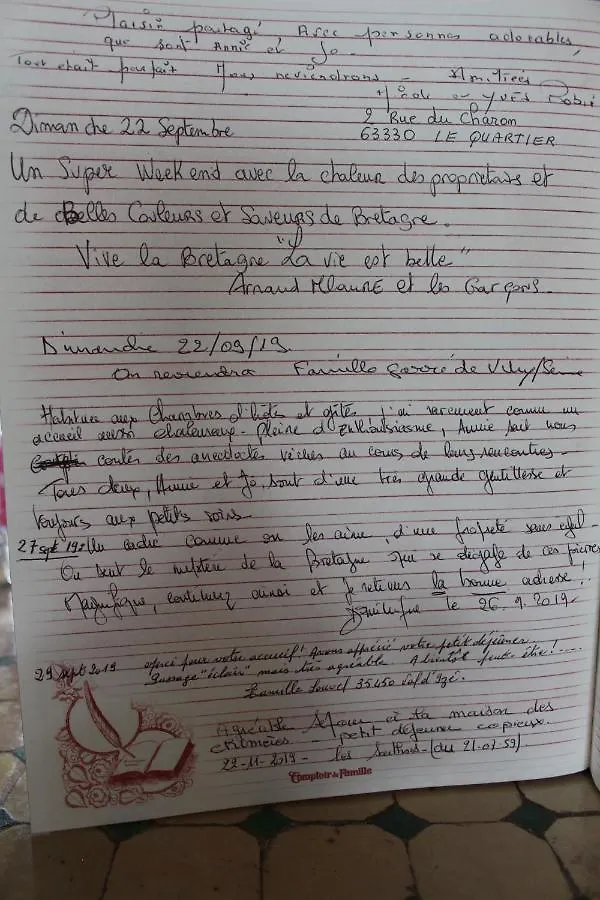 Maison partagé, Avec personnes adorables,
que sont Annie et Jo.
Tout était parfait Nous reviendrons - Amitiés
et Yves
2 Rue du Charon
Dimanche 22 Septembre
63330 LE QUARTIER
Un Super Week end avec la chaleur des proprietaires et
de Belles Couleurs et Saveurs de Bretagne.
Vive la Bretagne "La vie est belle"
Arnaud et les Garçons.
Dimanche 22/09/19.
On reviendra Famille de Vitry/Seine
Habituée aux Chambres d'hôtes et gîtes, j'ai rarement connu un
accueil aussi chaleureux - pleine d'enthousiasme, Annie sait nous
conter des anecdotes vécues au cours de leurs rencontres -
Tous deux, Annie et Jo, sont d'une très grande gentillesse et
toujours aux petits soins -
27 sept 19: Un cadre comme on les aime, d'une propreté sans égal -
On sent le mystère de la Bretagne qui se dégage de ces pierres
Magnifique, continuez ainsi et je retiens la bonne adresse!
le 26.9.2019
29 sept 2019 merci pour votre accueil! Avons apprécié votre petit déjeuner.
Passage "éclair" mais très agréable. A bientôt peut être!....
Famille Louvel 35450 Val d'Izé.
Agréable séjour à la maison des
chimères - petit déjeuner copieux.
22-11-2019 - les (du 21-07-59)
Comptoir de Famille